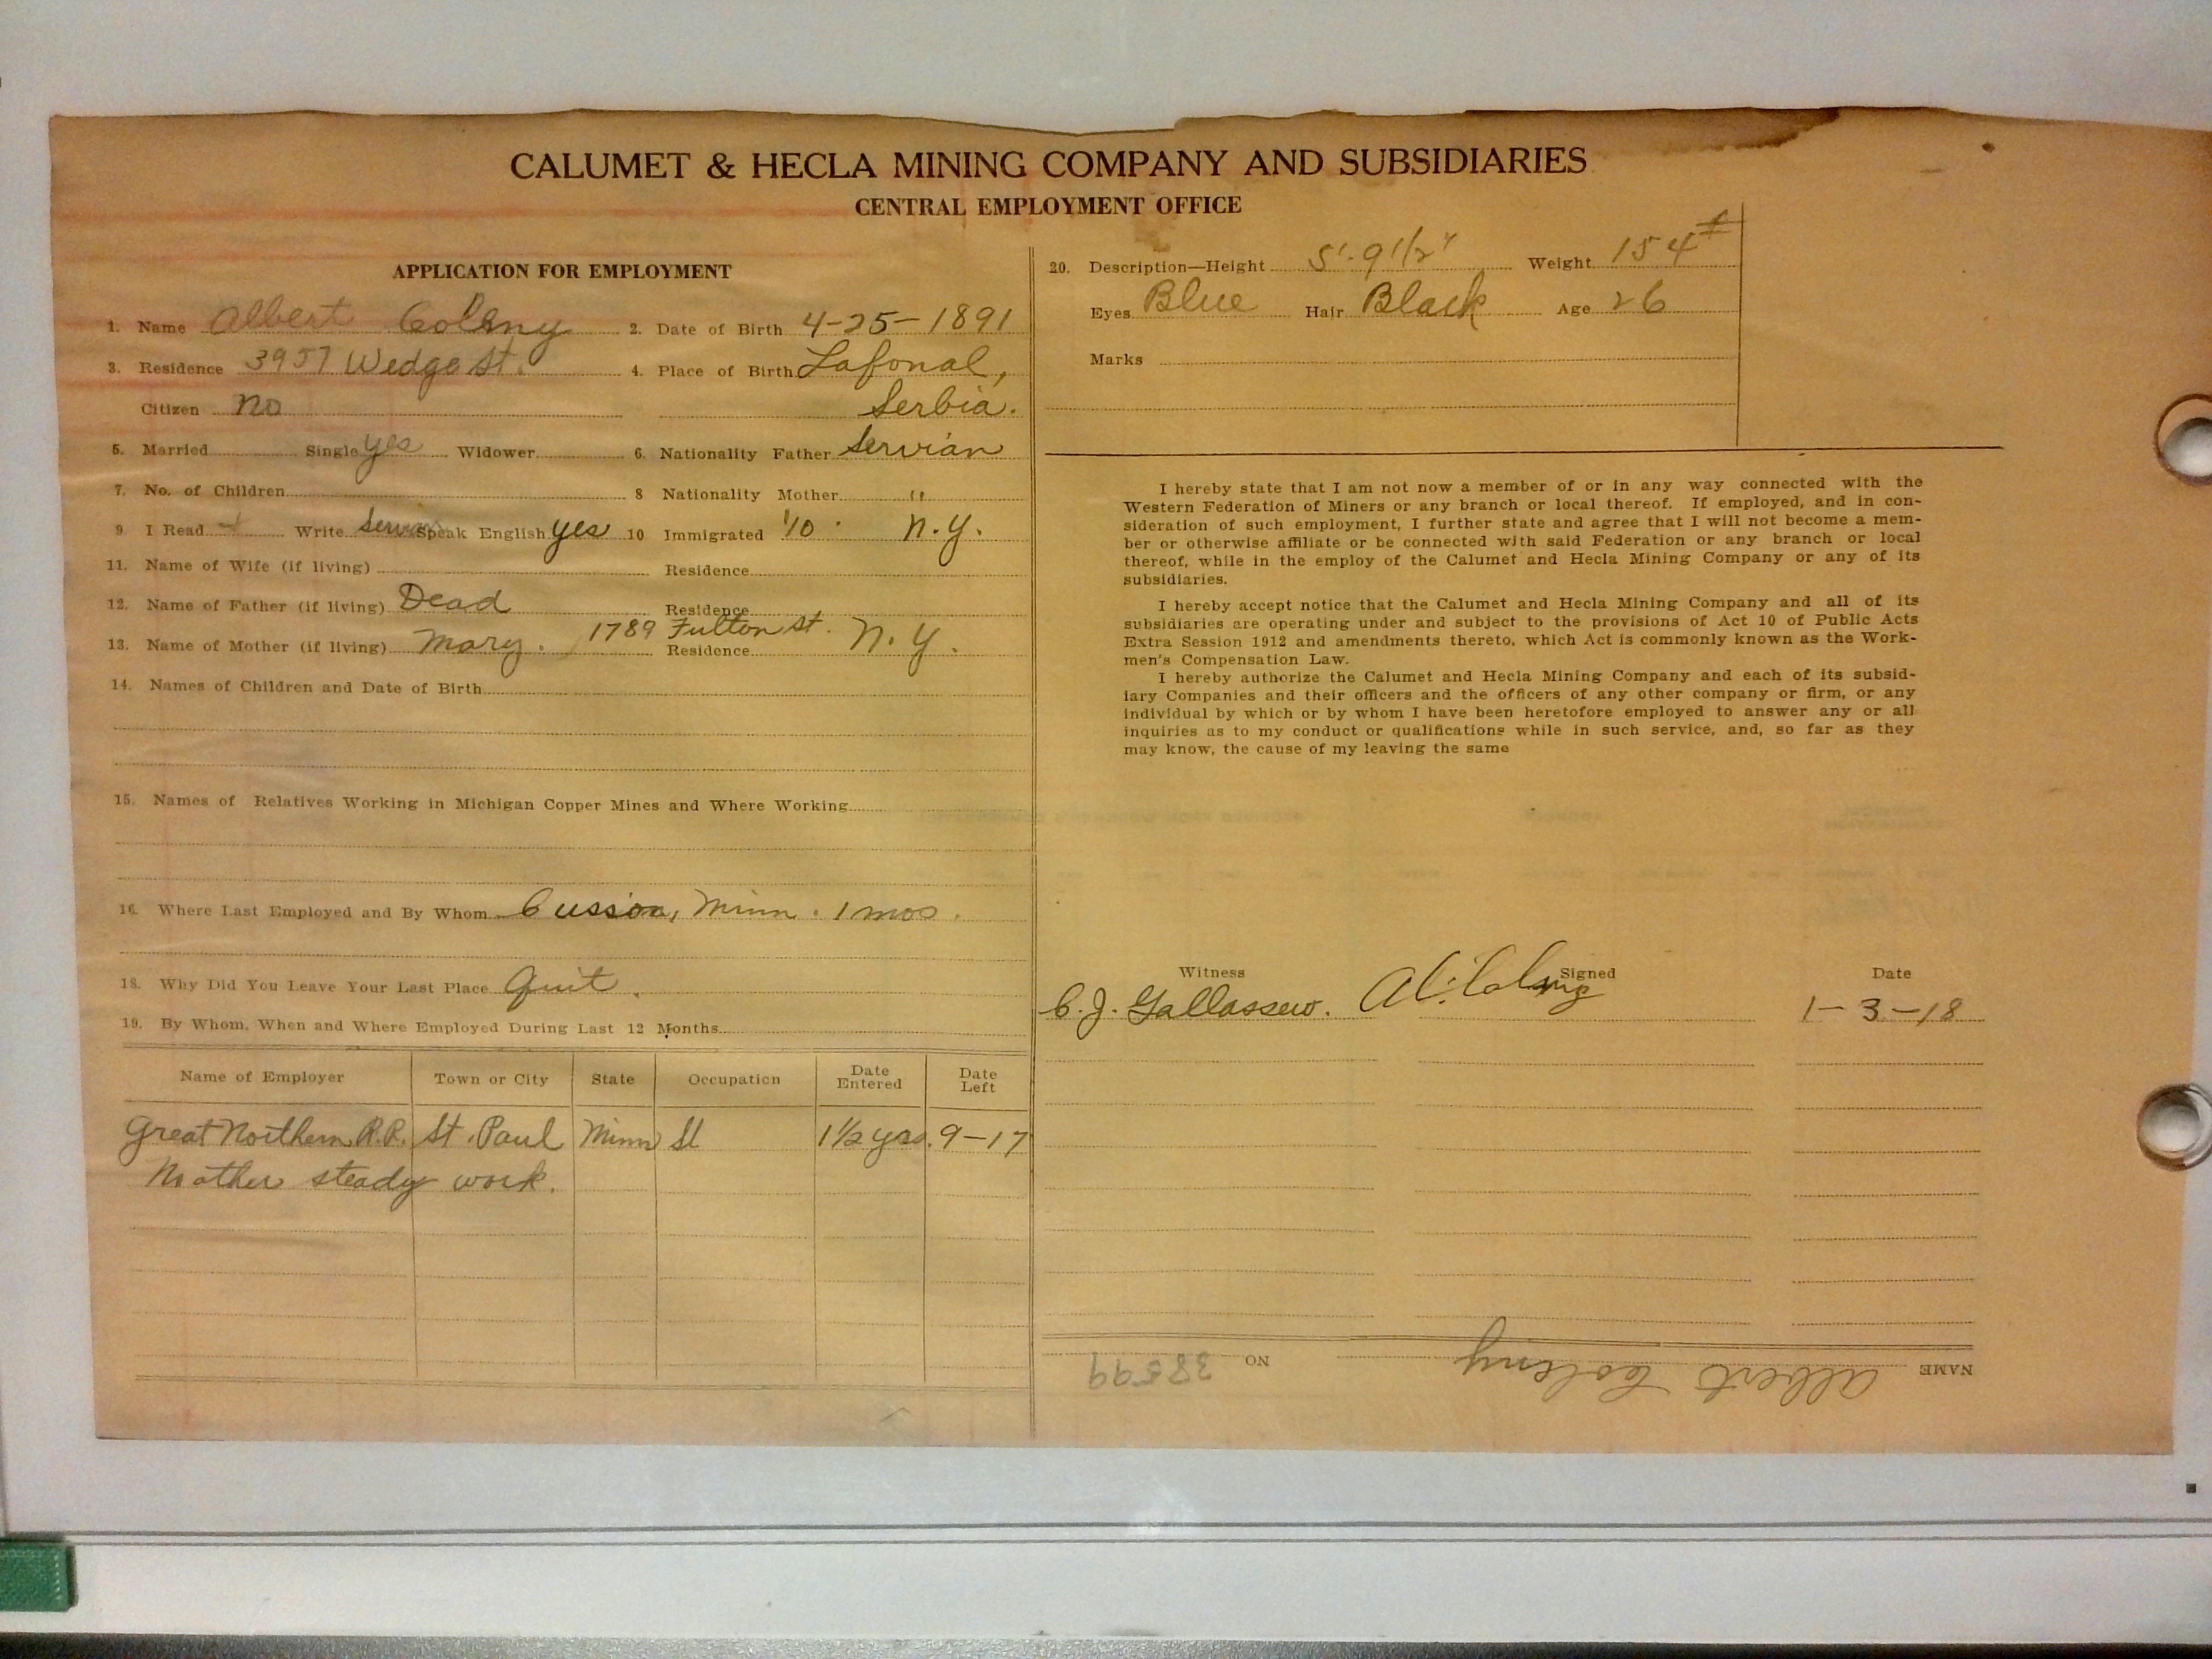 CALUMET & HECLA MINING COMPANY AND SUBSIDIARIES
CENTRAL EMPLOYMENT OFFICE
APPLICATION FOR EMPLOYMENT
1. Name Albert Coleny 2. Date of Birth 4-25-1891
3. Residence 3957 Wedge St. 4. Place of Birth Lafonal,
Citizen No Serbia.
5. Married Single yes Widower 6. Nationality Father Servian
7. No. of Children 8 Nationality Mother "
9 I Read Write Servian Speak English yes 10 Immigrated '10 N.Y.
11. Name of Wife (if living) Residence
12. Name of Father (if living) Dead Residence
13. Name of Mother (if living) Mary. 1789 Fulton St. Residence N.Y.
14. Names of Children and Date of Birth
15. Names of Relatives Working in Michigan Copper Mines and Where Working
16. Where Last Employed and By Whom Cusson, Minn. 1 mos.
18. Why Did You Leave Your Last Place Quit.
19. By Whom, When and Where Employed During Last 12 Months
Name of Employer Town or City State Occupation Date Entered Date Left
Great Northern R.R. St. Paul Minn 1 1/2 yrs. 9-17
No other steady work.
20. Description—Height 5'-9 1/2" Weight 154#
Eyes Blue Hair Black Age 26
Marks
I hereby state that I am not now a member of or in any way connected with the
Western Federation of Miners or any branch or local thereof. If employed, and in con-
sideration of such employment, I further state and agree that I will not become a mem-
ber or otherwise affiliate or be connected with said Federation or any branch or local
thereof, while in the employ of the Calumet and Hecla Mining Company or any of its
subsidiaries.
I hereby accept notice that the Calumet and Hecla Mining Company and all of its
subsidiaries are operating under and subject to the provisions of Act 10 of Public Acts
Extra Session 1912 and amendments thereto, which Act is commonly known as the Work-
men's Compensation Law.
I hereby authorize the Calumet and Hecla Mining Company and each of its subsid-
iary Companies and their officers and the officers of any other company or firm, or any
individual by which or by whom I have been heretofore employed to answer any or all
inquiries as to my conduct or qualifications while in such service, and, so far as they
may know, the cause of my leaving the same
Witness Signed Date
C. J. Gallassew. Al. Coleny 1-3-18
NAME Albert Coleny NO 38599